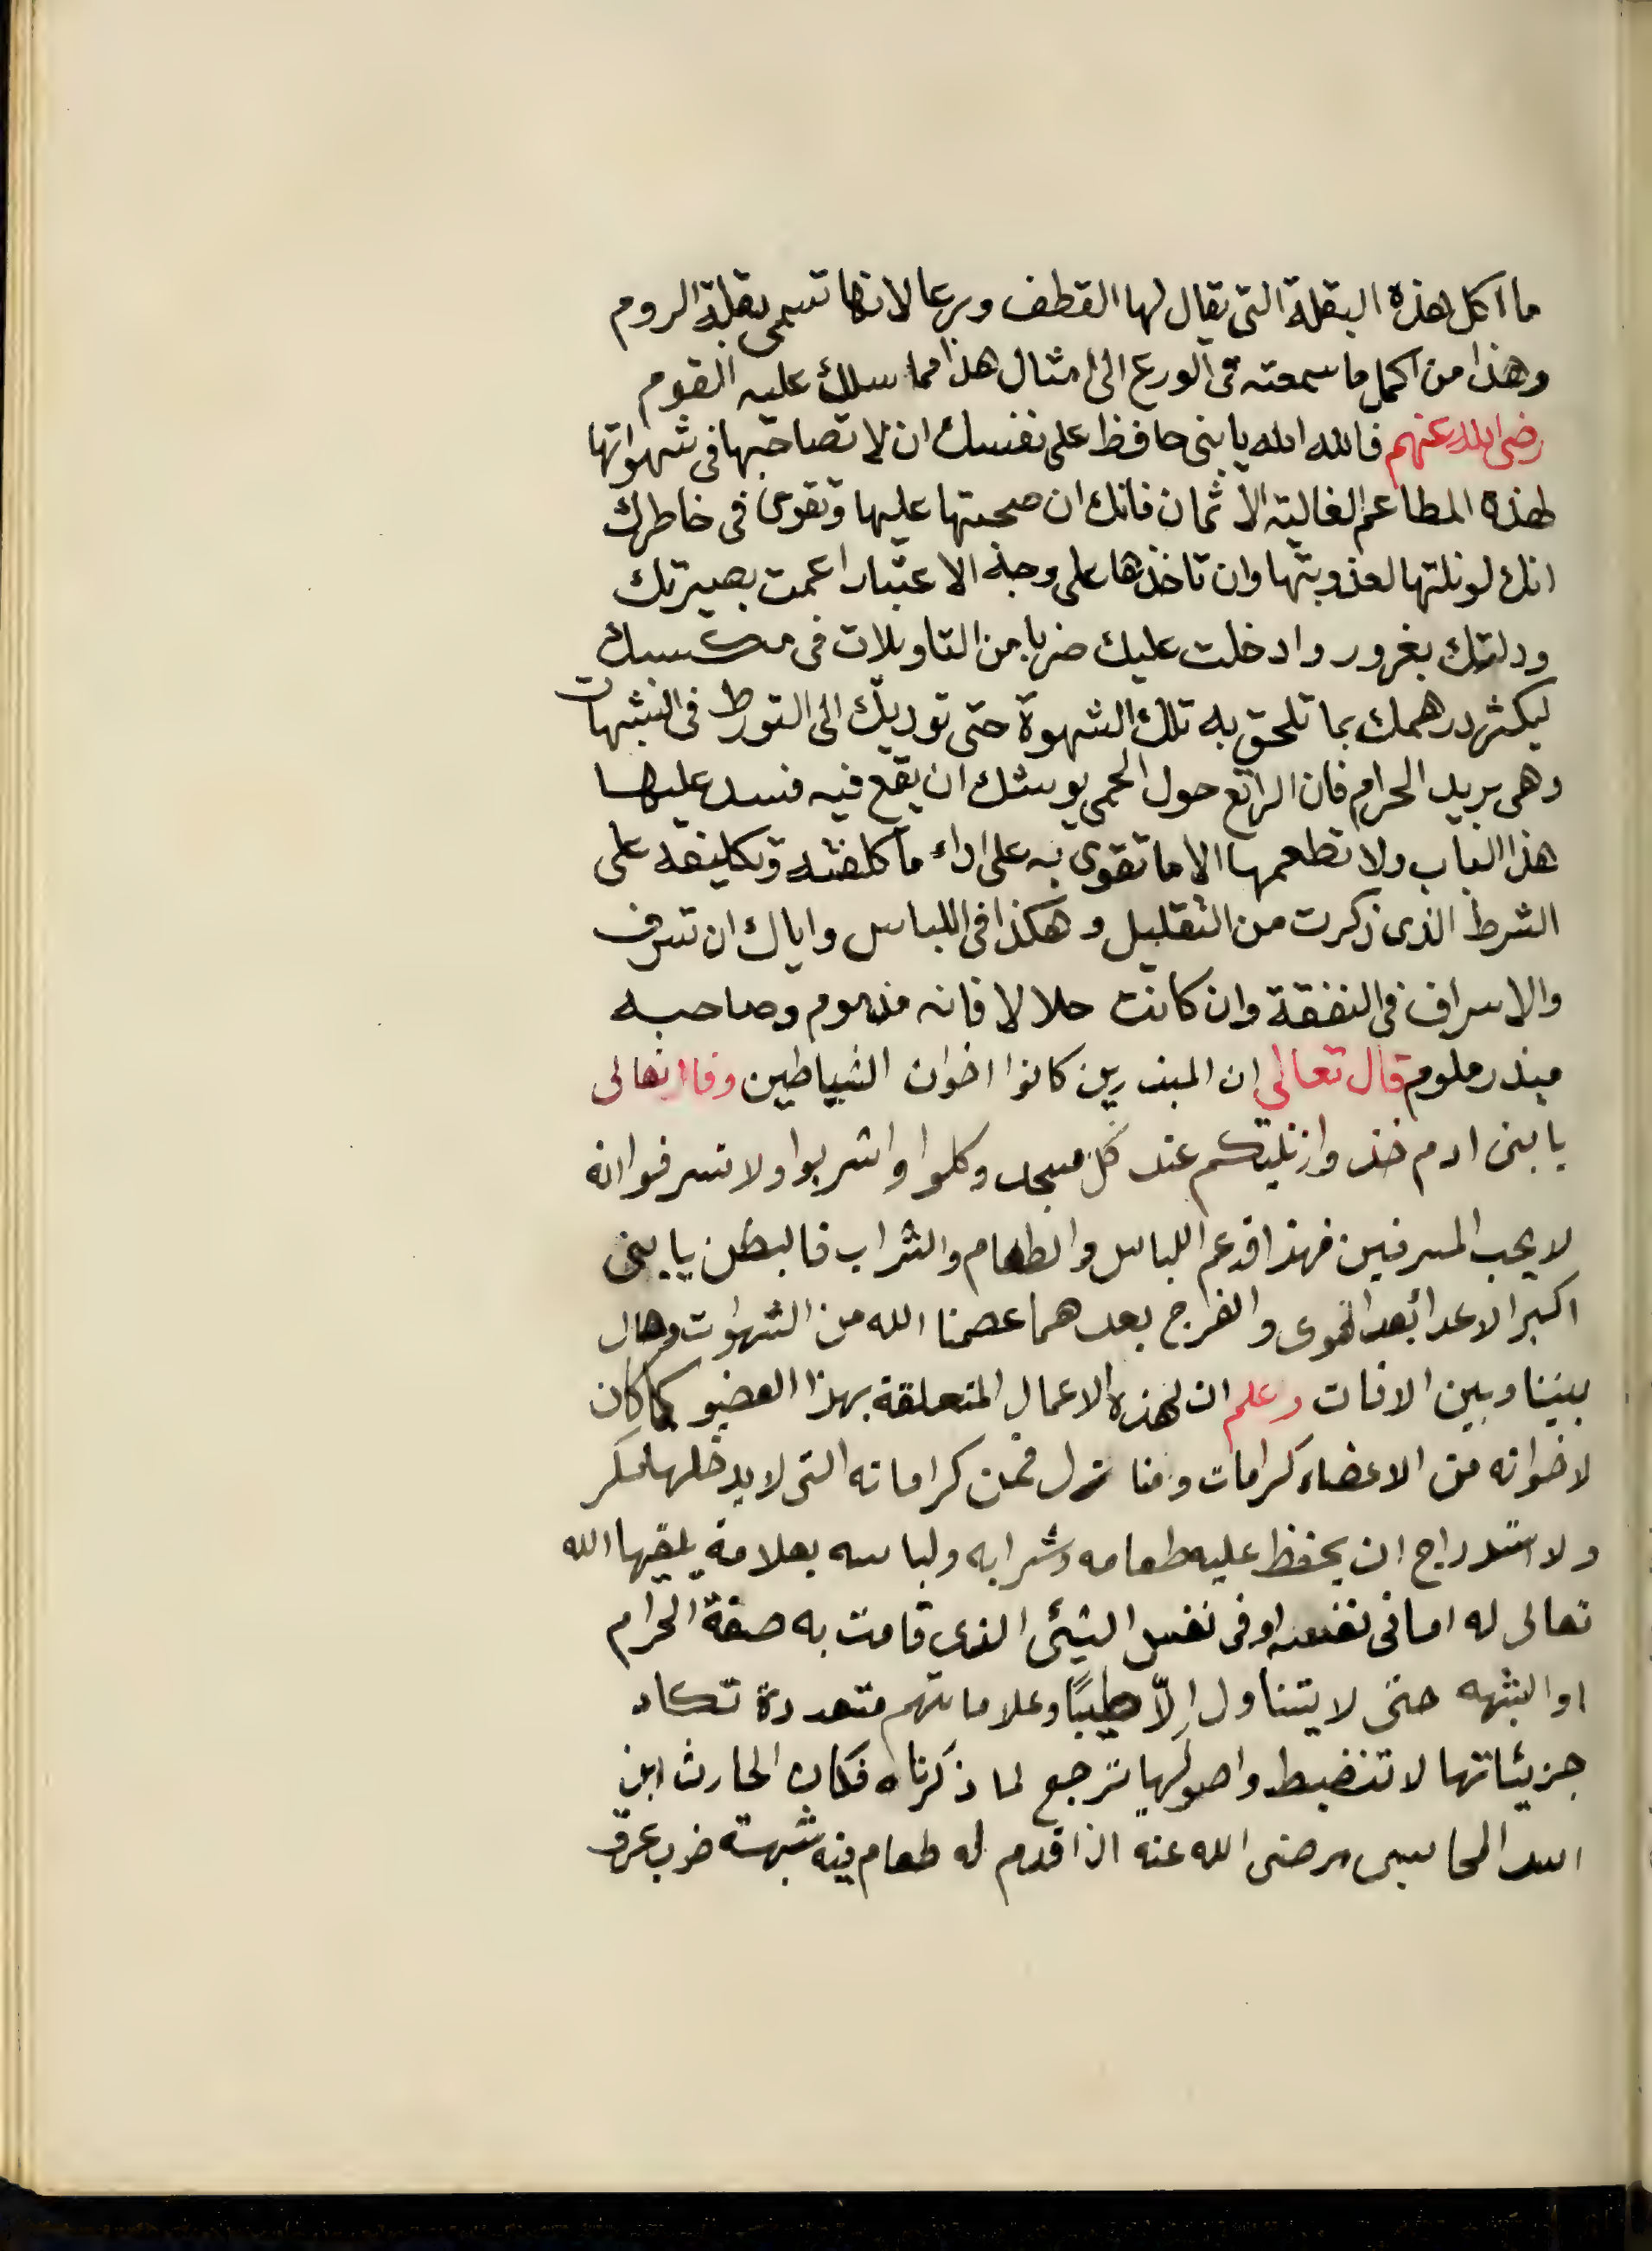 ما اكل هذه البقلة التى يقال لها القطف ورعا لانها تسمى بقلة الروم
وهذا من اكمل ما سمعته فى الورع الى امثال هذا مما سلك عليه القوم
رضى الله عنهم فالله الله يا بنى حافظ على نفسك ان لا تصاحبها فى شهواتها
لهذه المطاعم الغالية الاثمان فانك ان صحبتها عليها وتقوى فى خاطرك
انك لو نلتها لعذوبتها وان تاخذها على وجه الاعتبار اعمت بصيرتك
ودلتك بغرور وادخلت عليك ضربا من التاويلات فى مكسبك
ليكثر درهمك بما تلحق به تلك الشهوة حتى توديك الى التورط فى الشبهات
وهى بريد الحرام فان الراتع حول الحمى يوشك ان يقع فيه فسد عليها
هذا الباب ولا تطعمها الا ما تقوى به على اداء ما كلفته وتكليفه على
الشرط الذى ذكرت من التقليل وهكذا فى اللباس واياك ان تسرف
والاسراف فى النفقة وان كانت حلالا فانه مذموم وصاحبه
مبذر ملوم قال تعالى ان المبذرين كانوا اخوان الشياطين وقال تعالى
يا بنى ادم خذوا زينتكم عند كل مسجد وكلوا واشربوا ولا تسرفوا انه
لا يحب المسرفين فهذا قد عم اللباس والطعام والشراب فالبطن يا بنى
اكبر الاعدا بعد الهوى والفرج بعدهما عصمنا الله من الشهوات وحال
بيننا وبين الافات وعلم ان لهذه الاعمال المتعلقة بهذا العضو كما كان
لاخوانه من الاعضاء كرامات ومنازل فمن كراماته التى لا يدخلها مكر
ولا استدراج ان يحفظ عليه طعامه وشرابه ولباسه بعلامة يلقيها الله
تعالى له اما فى نفسه او فى نفس الشئى الذى قامت به صفة الحرام
او الشبهه حتى لا يتناول إلّا طيبًا وعلاماتهم متعددة تكاد
جزئياتها لا تنضبط واصولها ترجع لما ذكرناه فكان الحارث ابن
اسد المحاسبى رضى الله عنه اذا قدم له طعام فيه شبهته ضرب عرق